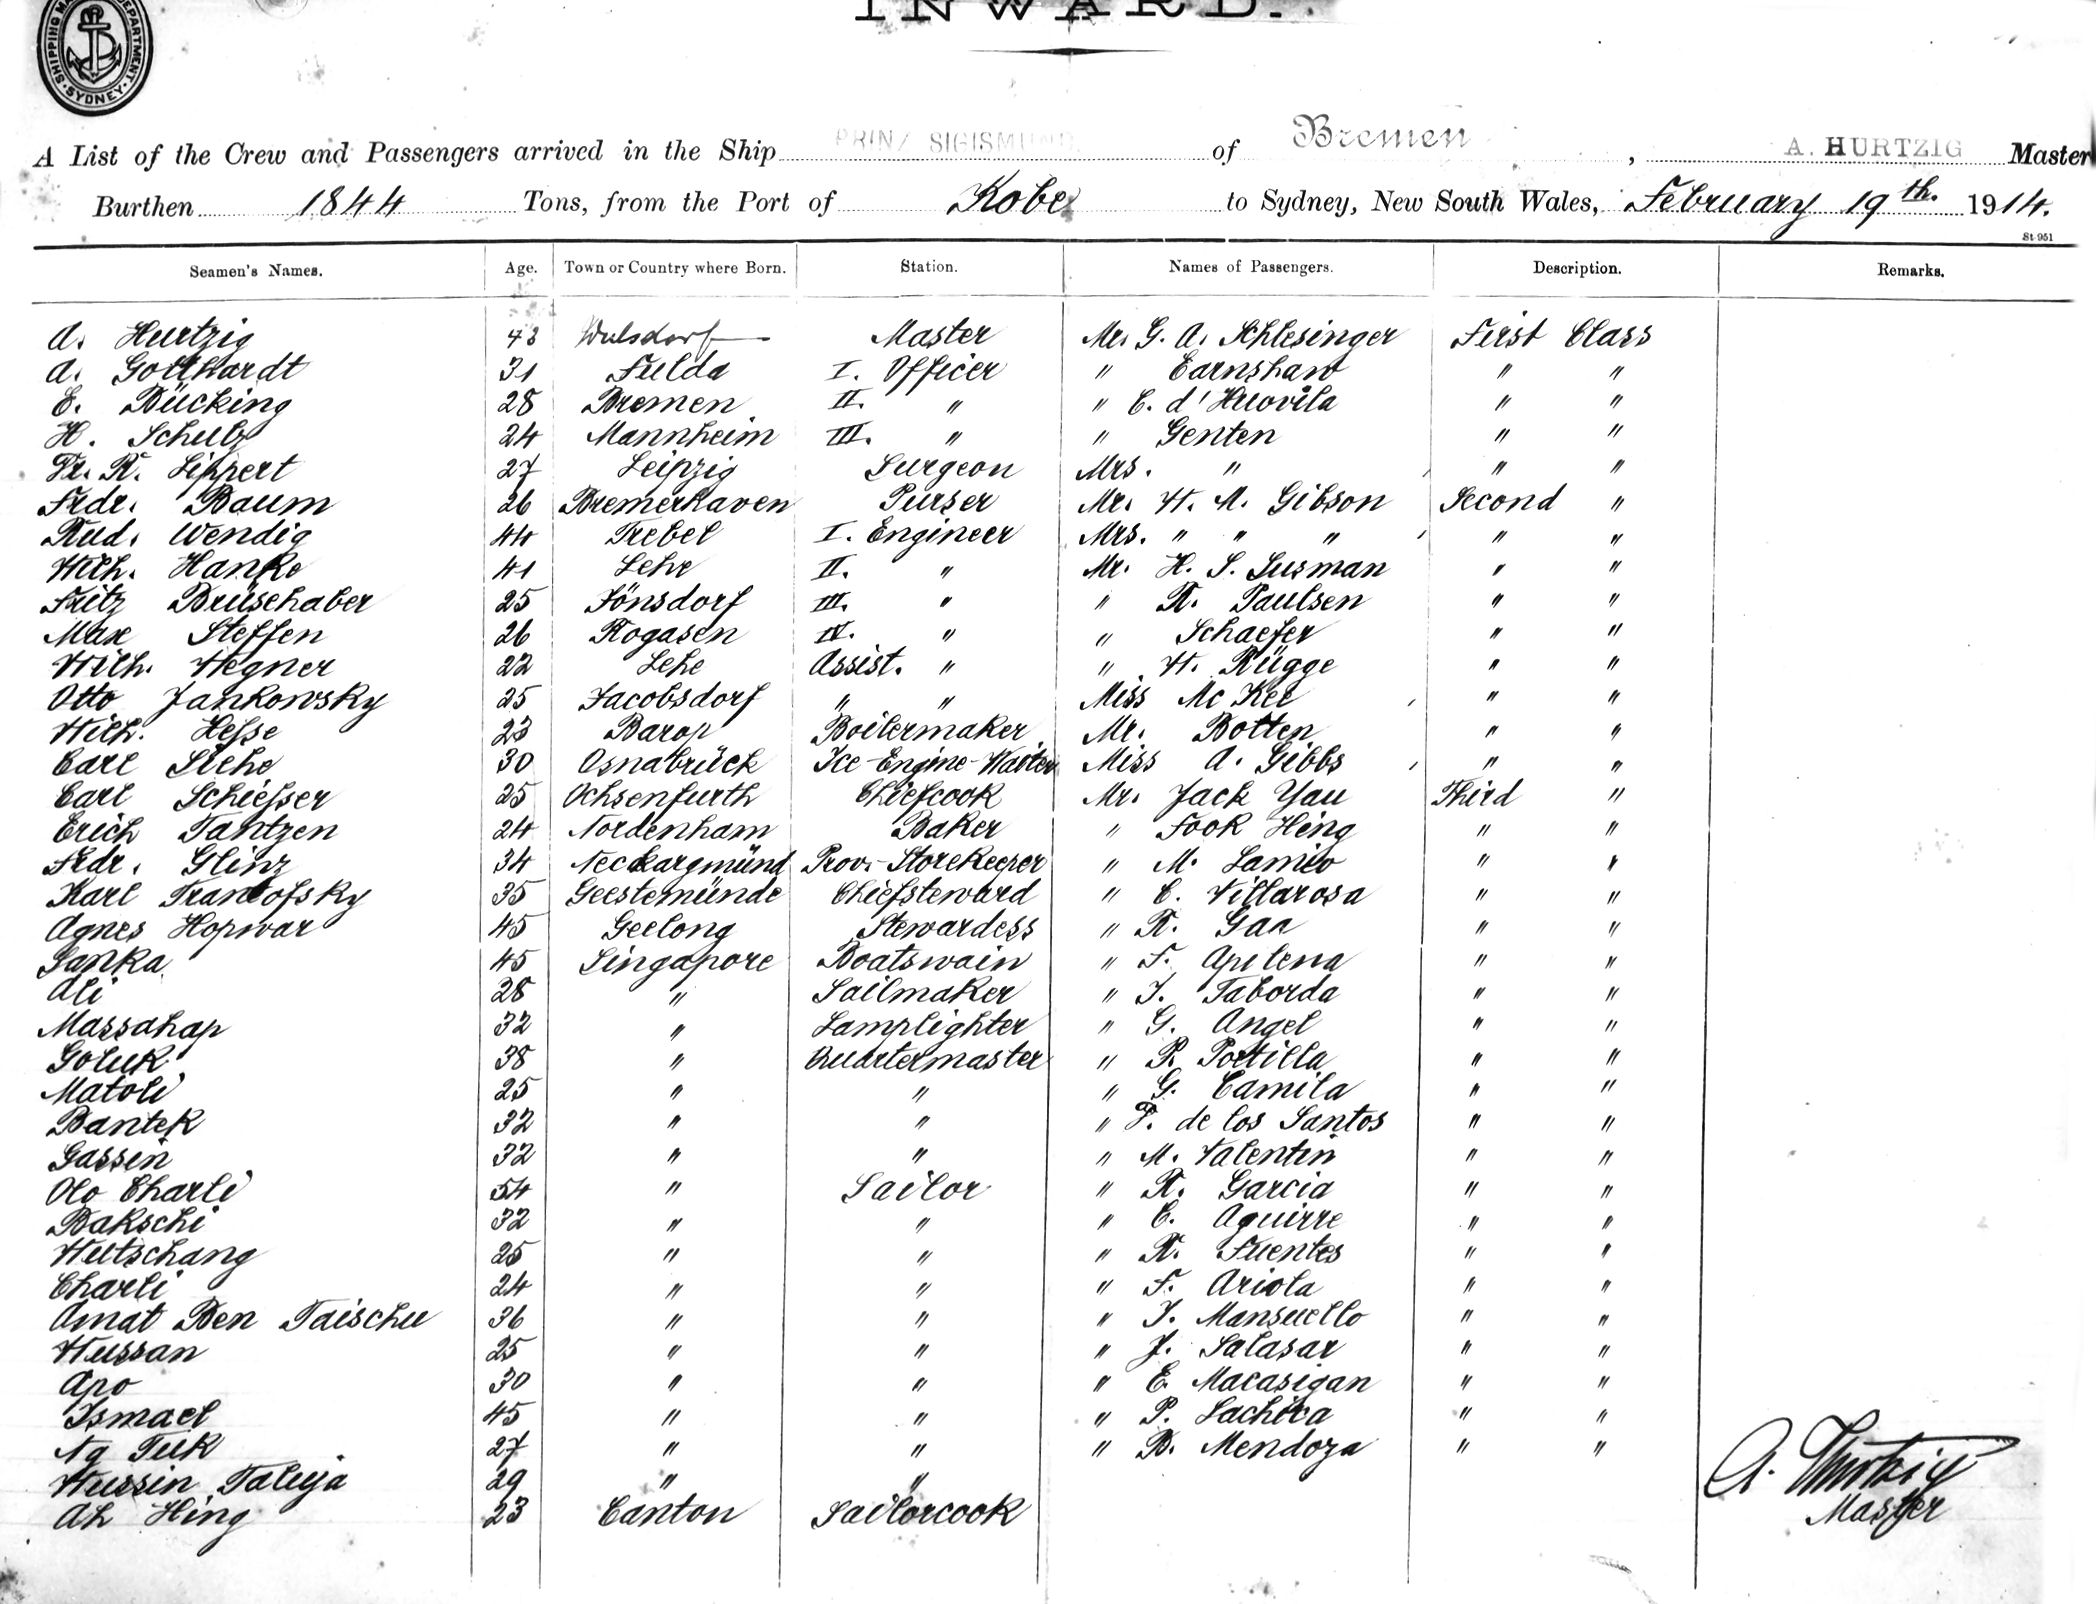 INWARD.
SHIPPING MA DEPARTMENT SYDNEY
A List of the Crew and Passengers arrived in the Ship PRINZ SIGISMUND of Bremen, A. HURTZIG Master
Burthen 1844 Tons, from the Port of Kobe to Sydney, New South Wales, February 19th. 1914.
St 951
Seamen's Names. Age. Town or Country where Born. Station. Names of Passengers. Description. Remarks.
A. Hurtzig 43 Wulsdorf Master Mr. G. A. Schlesinger First Class
A. Gotthardt 31 Fulda I. Officer " Earnshaw " "
E. Bücking 28 Bremen II. " " E. d'Huovila " "
H. Schulz 24 Mannheim III. " " Genten " "
Dr. R. Lippert 27 Leipzig Surgeon Mrs. " " "
Frdr. Baum 26 Bremerhaven Purser Mr. H. M. Gibson Second "
Rud. Wendig 44 Trebel I. Engineer Mrs. " " " " "
Wilh. Hanke 41 Lehe II. " Mr. H. S. Susman " "
Fritz Brüsehaber 25 Jönsdorf III. " " R. Paulsen " "
Max Steffen 26 Rogasen IV. " " Schaefer " "
Wilh. Wegner 22 Lehe Assist. " " W. Rügge " "
Otto Jankowsky 25 Jacobsdorf " " Miss Mc Kee " "
Wilh. Hesse 23 Barop Boilermaker Mr. Botten " "
Carl Siehe 30 Osnabrück Ice-Engine-Waiter Miss A. Gibbs " "
Carl Schiesser 25 Ochsenfurth Chiefcook Mr. Jack Yau Third "
Erich Tantzen 24 Nordenham Baker " Fook Hing " "
Frdr. Glinz 34 Neckargmünd Prov.-Storekeeper " M. Lamio " "
Karl Trantofsky 35 Geestemünde Chiefsteward " C. Villarosa " "
Agnes Hopwar 45 Geelong Stewardess " R. Gaa " "
Sanka 45 Singapore Boatswain " F. Apilena " "
Ali 28 " Sailmaker " J. Taborda " "
Massahap 32 " Lamplighter " G. Angel " "
Goluk 38 " Quartermaster " P. Portilla " "
Matoli 25 " " " G. Camila " "
Bantek 32 " " " P. de los Santos " "
Gassin 32 " " " M. Valentin " "
Olo Charli 54 " Sailor " R. Garcia " "
Bakschi 32 " " " C. Aguirre " "
Hutschang 25 " " " R. Fuentes " "
Charli 24 " " " F. Ariola " "
Amat Ben Taischu 36 " " " J. Mansuello " "
Hussan 25 " " " J. Salasar " "
Apo 30 " " " E. Macasigan " "
Ismael 45 " " " P. Lachica " "
Ng Tuk 27 " " " B. Mendoza " "
Hussin Taluja 29 " " A. Hurtzig
Ah Hing 23 Canton Sailorcook Master